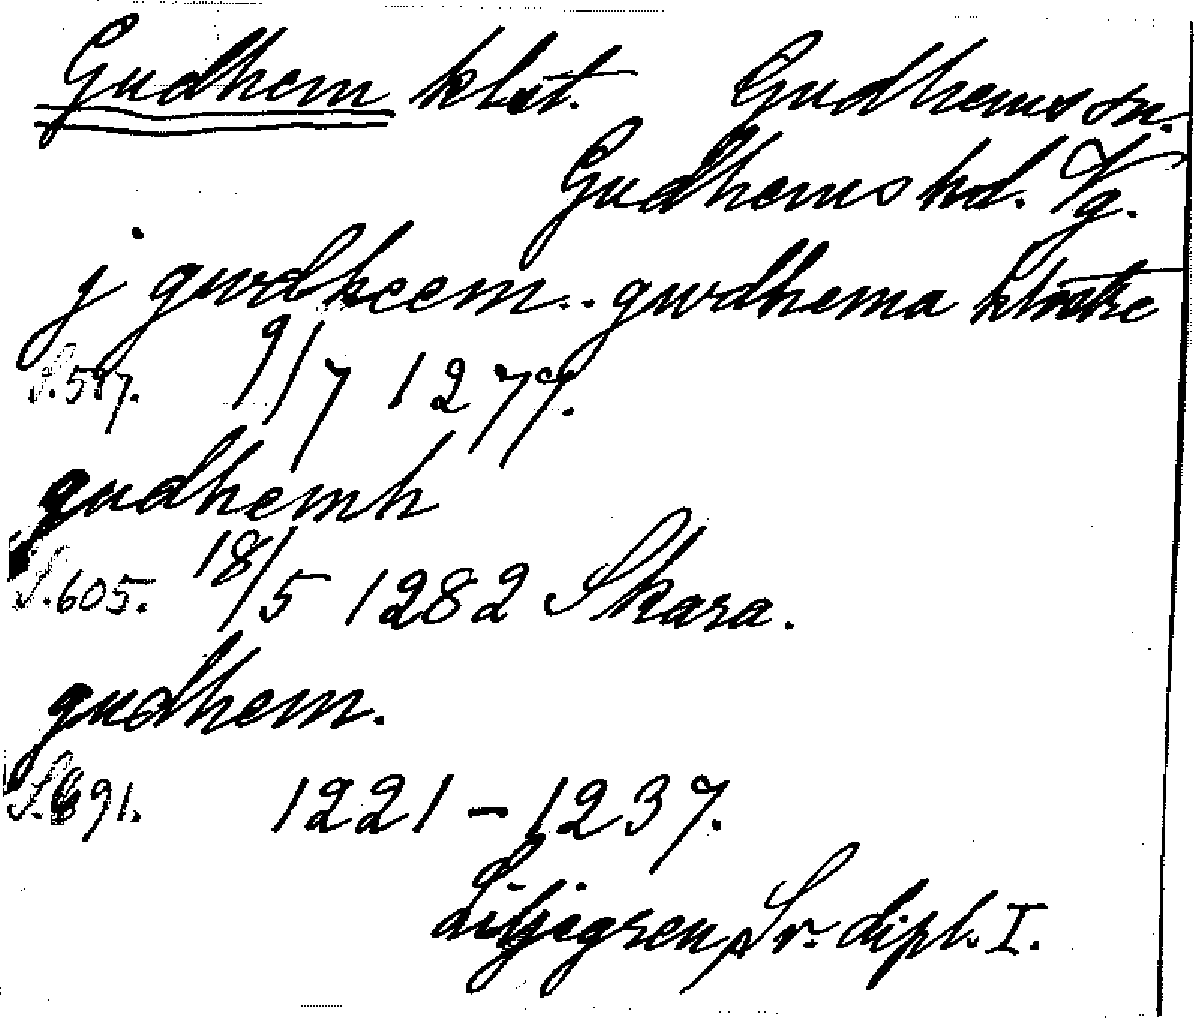 Gudhem klst. Gudhems sn.
Gudhems hd. Vg.
j gwdheem .. gwdhema klostre
S. 587. 9/7 1277.
gudhemh
S. 605. 18/5 1282 Skara.
gudhem.
S. 691. 1221 - 1237.
Liljegren, Sv. dipl. I.